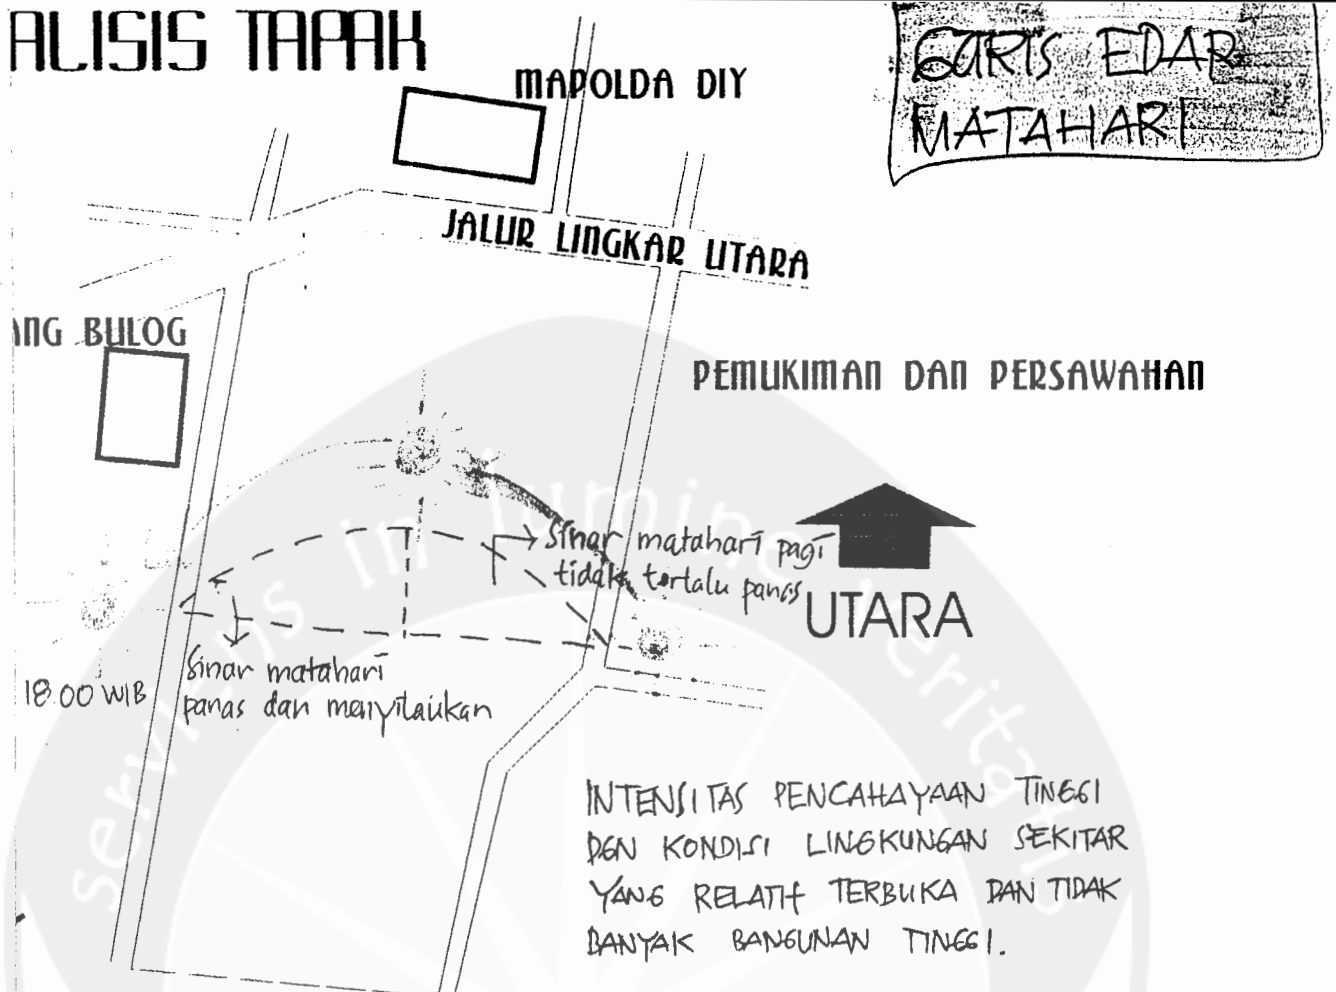 ALISIS TAPAK
GARIS EDAR
MATAHARI
MAPOLDA DIY
JALUR LINGKAR UTARA
ANG BULOG
PEMUKIMAN DAN PERSAWAHAN
Sinar matahari pagi
tidak terlalu panas
UTARA
Sinar matahari
panas dan menyilaukan
18.00 WIB
INTENSITAS PENCAHAYAAN TINGGI
DGN KONDISI LINGKUNGAN SEKITAR
YANG RELATIF TERBUKA DAN TIDAK
BANYAK BANGUNAN TINGGI.
serviens in lumine veritatis